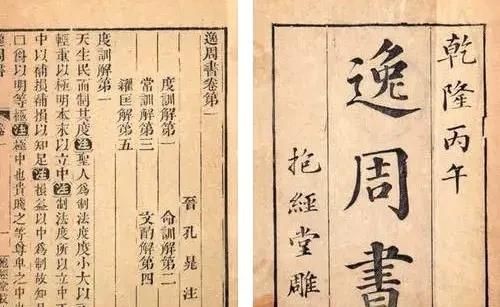 乾隆丙午
逸周書
抱經堂雕
逸周書卷第一
晉孔晁注
度訓解第一 命訓解第二
常訓解第三 文酌解第四
糴匡解第五
度訓解第一
天生民而制其度注聖人爲制法度度小大以
輕重以極明本末以立中注制法度所以立中
中以補損補損以知足注損益以中爲制故知
口爵以明等極注極中也貴賤之等尊卑之中
逸周書